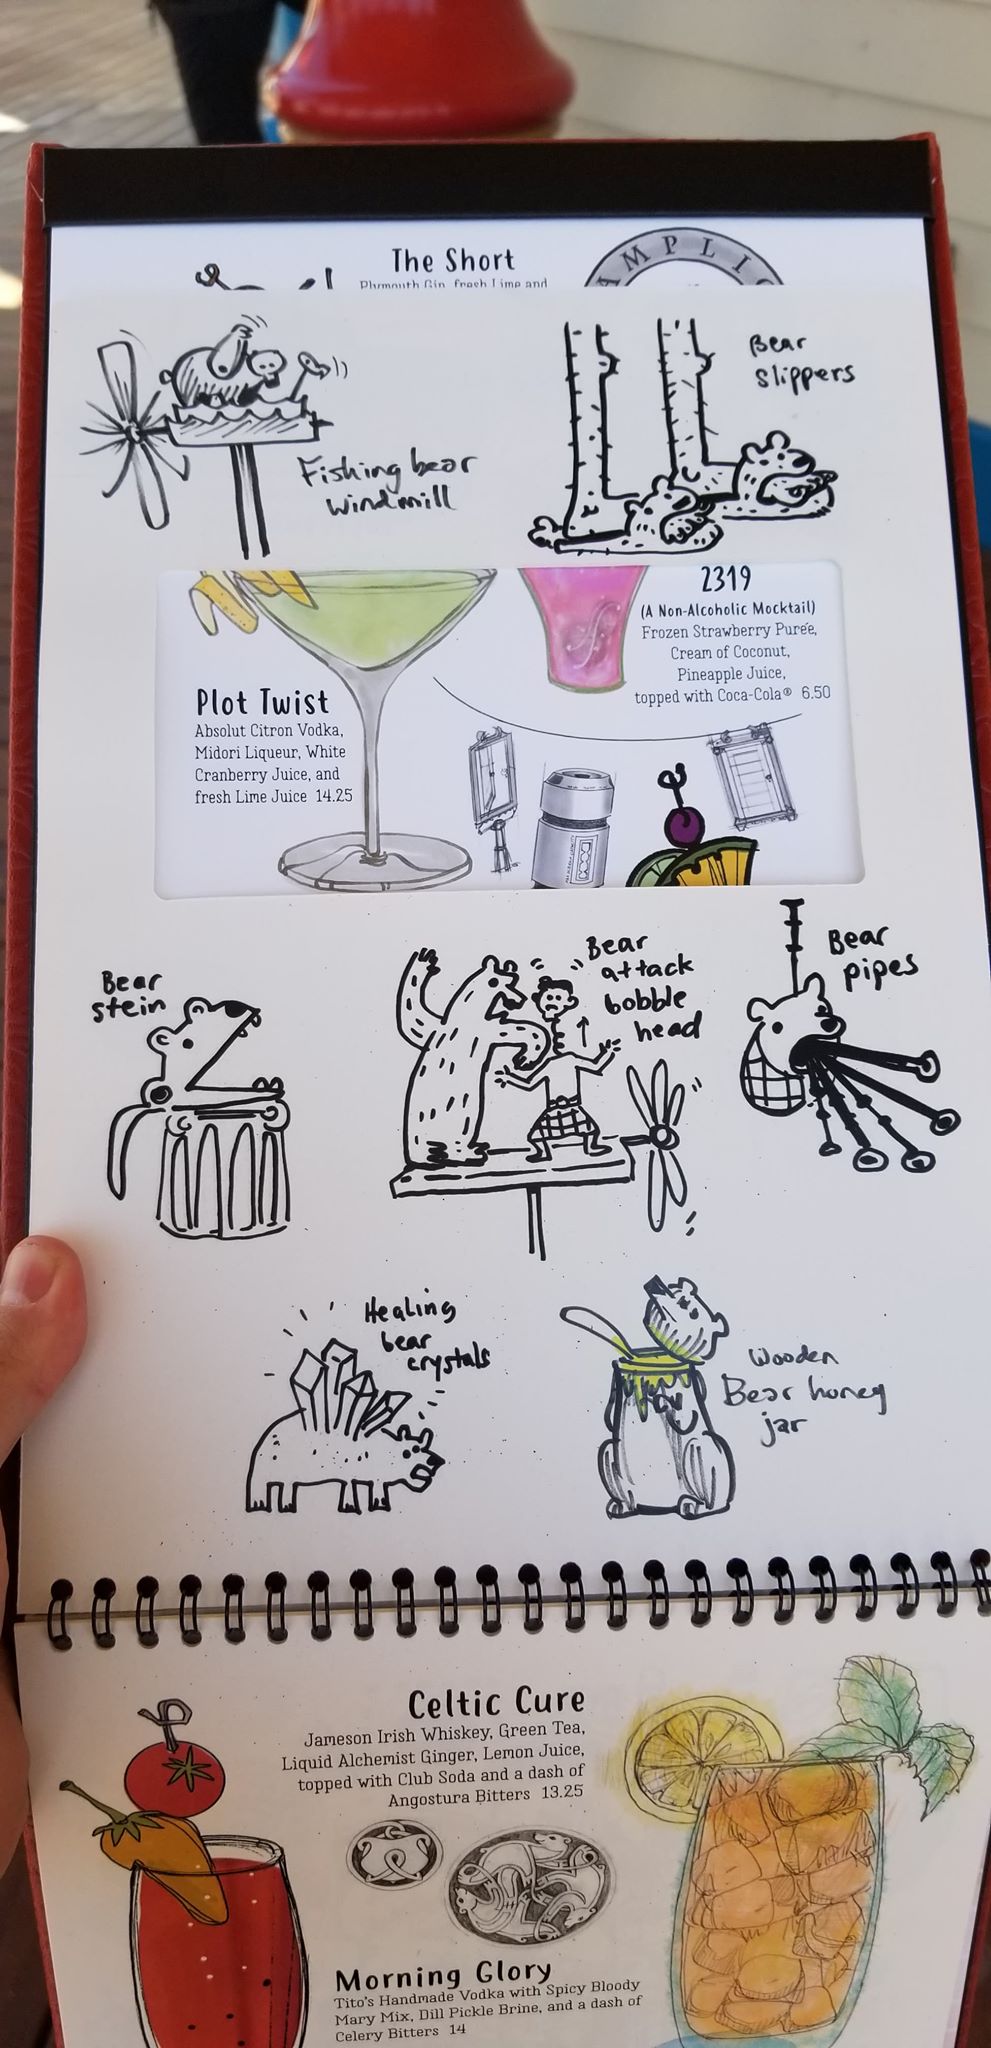 The Short
Plymouth Gin, fresh Lime and
AMPLI
Fishing bear
windmill
Bear
slippers
2319
(A Non-Alcoholic Mocktail)
Frozen Strawberry Purée,
Cream of Coconut,
Pineapple Juice,
topped with Coca-Cola® 6.50
Plot Twist
Absolut Citron Vodka,
Midori Liqueur, White
Cranberry Juice, and
fresh Lime Juice 14.25
Bear
stein
Bear
attack
bobble
head
Bear
pipes
Healing
bear
crystals
Wooden
Bear honey
jar
Celtic Cure
Jameson Irish Whiskey, Green Tea,
Liquid Alchemist Ginger, Lemon Juice,
topped with Club Soda and a dash of
Angostura Bitters 13.25
Morning Glory
Tito's Handmade Vodka with Spicy Bloody
Mary Mix, Dill Pickle Brine, and a dash of
Celery Bitters 14